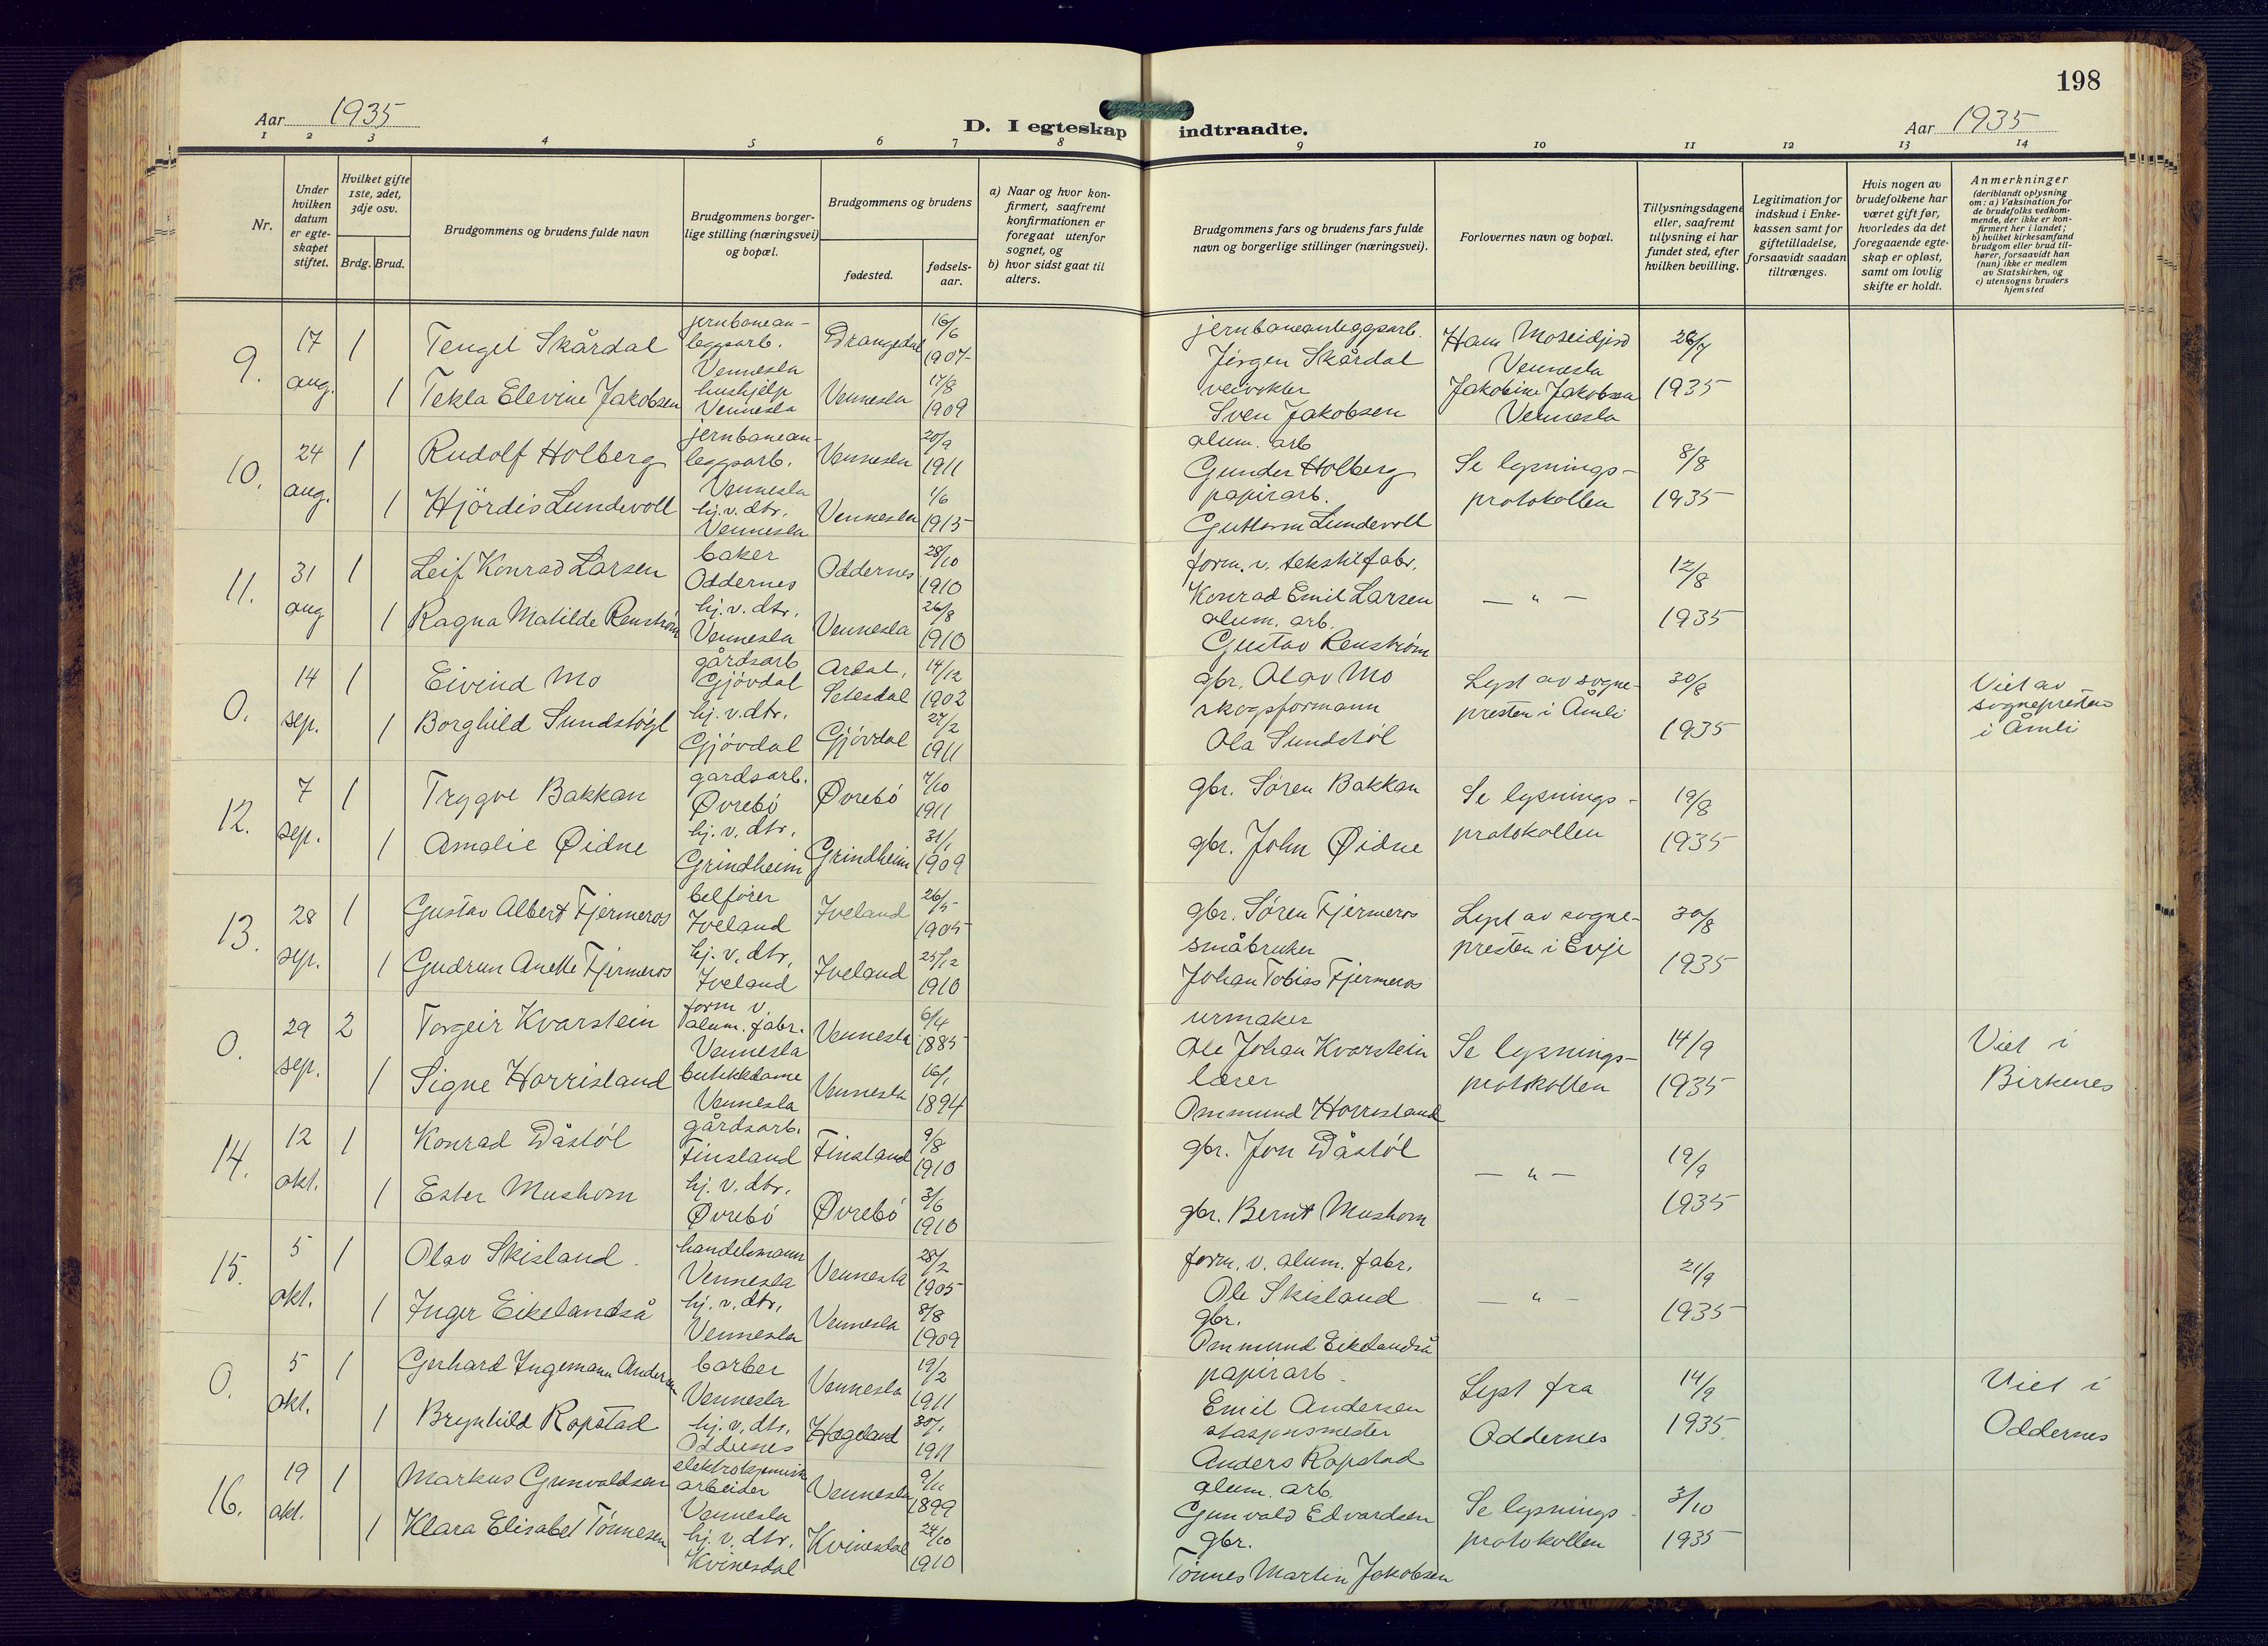 198
Aar 1935
D. I egteskap indtraadte.
Aar 1935
1 2 3 4 5 6 7 8 9 10 11 12 13 14
Nr.
Under hvilken datum er egteskapet stiftet.
Hvilket gifte 1ste, 2det, 3dje osv.
Brdg. Brud.
Brudgommens og brudens fulde navn
Brudgommens borgerlige stilling (næringsvei) og bopæl.
Brudgommens og brudens
fødested.
fødselsaar.
a) Naar og hvor konfirmert, saafremt konfirmationen er foregaat utenfor sognet, og
b) hvor sidst gaat til alters.
Brudgommens fars og brudens fars fulde navn og borgerlige stillinger (næringsvei).
Forlovernes navn og bopæl.
Tillysningsdagene eller, saafremt tillysning ei har fundet sted, efter hvilken bevilling.
Legitimation for indskud i Enkekassen samt for giftetilladelse, forsaavidt saadan tiltrænges.
Hvis nogen av brudefolkene har været gift før, hvorledes da det foregaaende egteskap er opløst, samt om lovlig skifte er holdt.
Anmerkninger
(deriblandt oplysning om: a) Vaksination for de brudefolks vedkommende, der ikke er konfirmert her i landet;
b) hvilket kirkesamfund brudgom eller brud tilhører, forsaavidt han (hun) ikke er medlem av Statskirken, og
c) utensogns bruders hjemsted
9. 17 aug. 1 Tengel Skårdal jernbaneanleggsarb. Vennesla Drangedal 16/6 1907 jernbaneanleggsarb. Jørgen Skårdal Vennesla 26/7 1935
1 Tekla Elevine Jakobsen hushjelp Vennesla Vennesla 17/8 1909 veivokter Sven Jakobsen Jakobine Jakobsen Vennesla
10. 24 aug. 1 Rudolf Holberg jernbaneanleggsarb. Vennesla Vennesla 20/9 1911 alum. arb Gunder Holberg Se lysningsprotokollen 8/8 1935
1 Hjördis Lundevoll hj. v. dtr. Vennesla Vennesla 1/6 1915 papirarb. Guttorm Lundevoll
11. 31 aug 1 Leif Konrad Larsen baker Oddernes Oddernes 28/10 1910 form. v. tekstilfabr. Konrad Emil Larsen — " — 12/8 1935
1 Ragna Matilde Renstrøm hj. v. dtr. Vennesla Vennesla 26/8 1910 alum. arb. Gustav Renstrøm
0. 14 sep. 1 Eivind Mo gårdsarb Gjövdal Ardal, Setesdal 14/12 1902 gbr. Olav Mo Lyst av sognepresten i Åmli 30/8 1935 Viet av sognepresten i Åmli
1 Borghild Sundstøyl hj. v. dtr. Gjövdal Gjövdal 27/2 1911 skogsformann Ola Sundstöl
12. 7 sep. 1 Trygve Bakkan gardsarb. Øvrebö Øvrebö 7/10 1911 gbr. Søren Bakkan Se lysningsprotokollen 19/8 1935
1 Amalie Øidne hj. v. dtr. Grindheim Grindheim 31/1 1909 gbr. John Øidne
13. 28 sep. 1 Gustav Albert Fjermeros belfører Iveland Iveland 26/5 1905 gbr. Søren Fjermeros Lyst av sognepresten i Evje 30/8 1935
1 Gudrun Anette Fjermeros hj. v. dtr. Iveland Iveland 25/12 1910 småbruker Johan Tobias Fjermeros
0. 29 sep. 2 Torgeir Kvarstein form v. alum. fabr. Vennesla Vennesla 6/4 1885 urmaker Ole Johan Kvarstein Se lysningsprotokollen 14/9 1935 Viet i Birkenes
1 Signe Horrisland butikkdame Vennesla Vennesla 16/1 1894 lærer Ommund Horrisland
14. 12 okt. 1 Konrad Dåstöl gårdsarb. Finsland Finsland 9/8 1910 gbr. Jon Dåstöl — " — 19/9 1935
1 Ester Mushom hj. v. dtr. Øvrebö Øvrebö 3/6 1910 gbr. Bernt Mushom
15. 5 okt. 1 Olav Skisland handelsmann Vennesla Vennesla 28/2 1905 form. v. alum. fabr. Ole Skisland — " — 21/9 1935
1 Inger Eikelandså hj. v. dtr. Vennesla Vennesla 8/8 1909 gbr. Ommund Eikelandså
0. 5 okt. 1 Gerhard Ingemann Andersen barber Vennesla Vennesla 19/2 1911 papirarb. Emil Andersen Lyst fra Oddernes 14/9 1935 Viet i Oddernes
1 Brynhild Ropstad hj. v. dtr. Oddernes Hægeland 30/1 1911 stasjonsmester Anders Ropstad
16. 19 okt. 1 Markus Gunvaldsen elektrokjemisk arbeider Vennesla Vennesla 9/11 1899 alum. arb. Gunvald Edvardsen Se lysningsprotokollen 3/10 1935
1 Klara Elisabet Tönnesen hj. v. dtr. Kvinesdal Kvinesdal 24/10 1910 gbr. Tönnes Martin Jakobsen